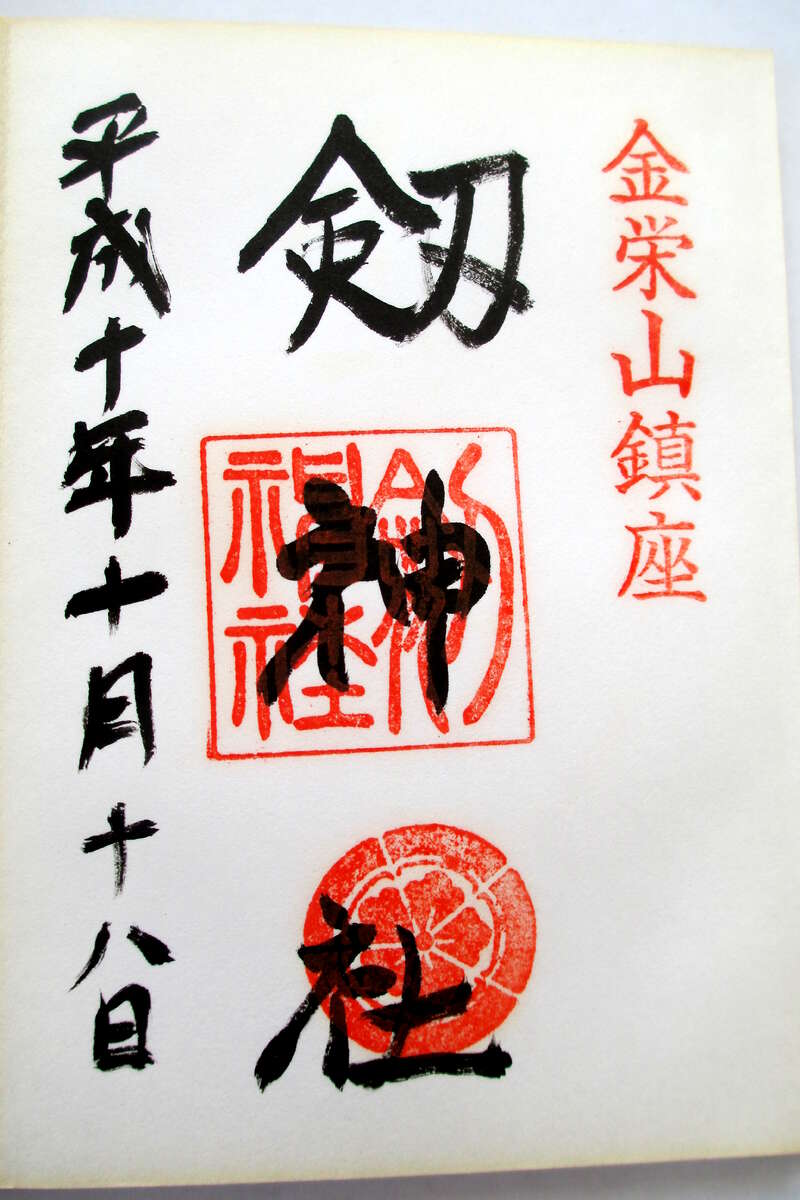 金栄山鎮座
劔神社
劔神社
平成十年十月十八日